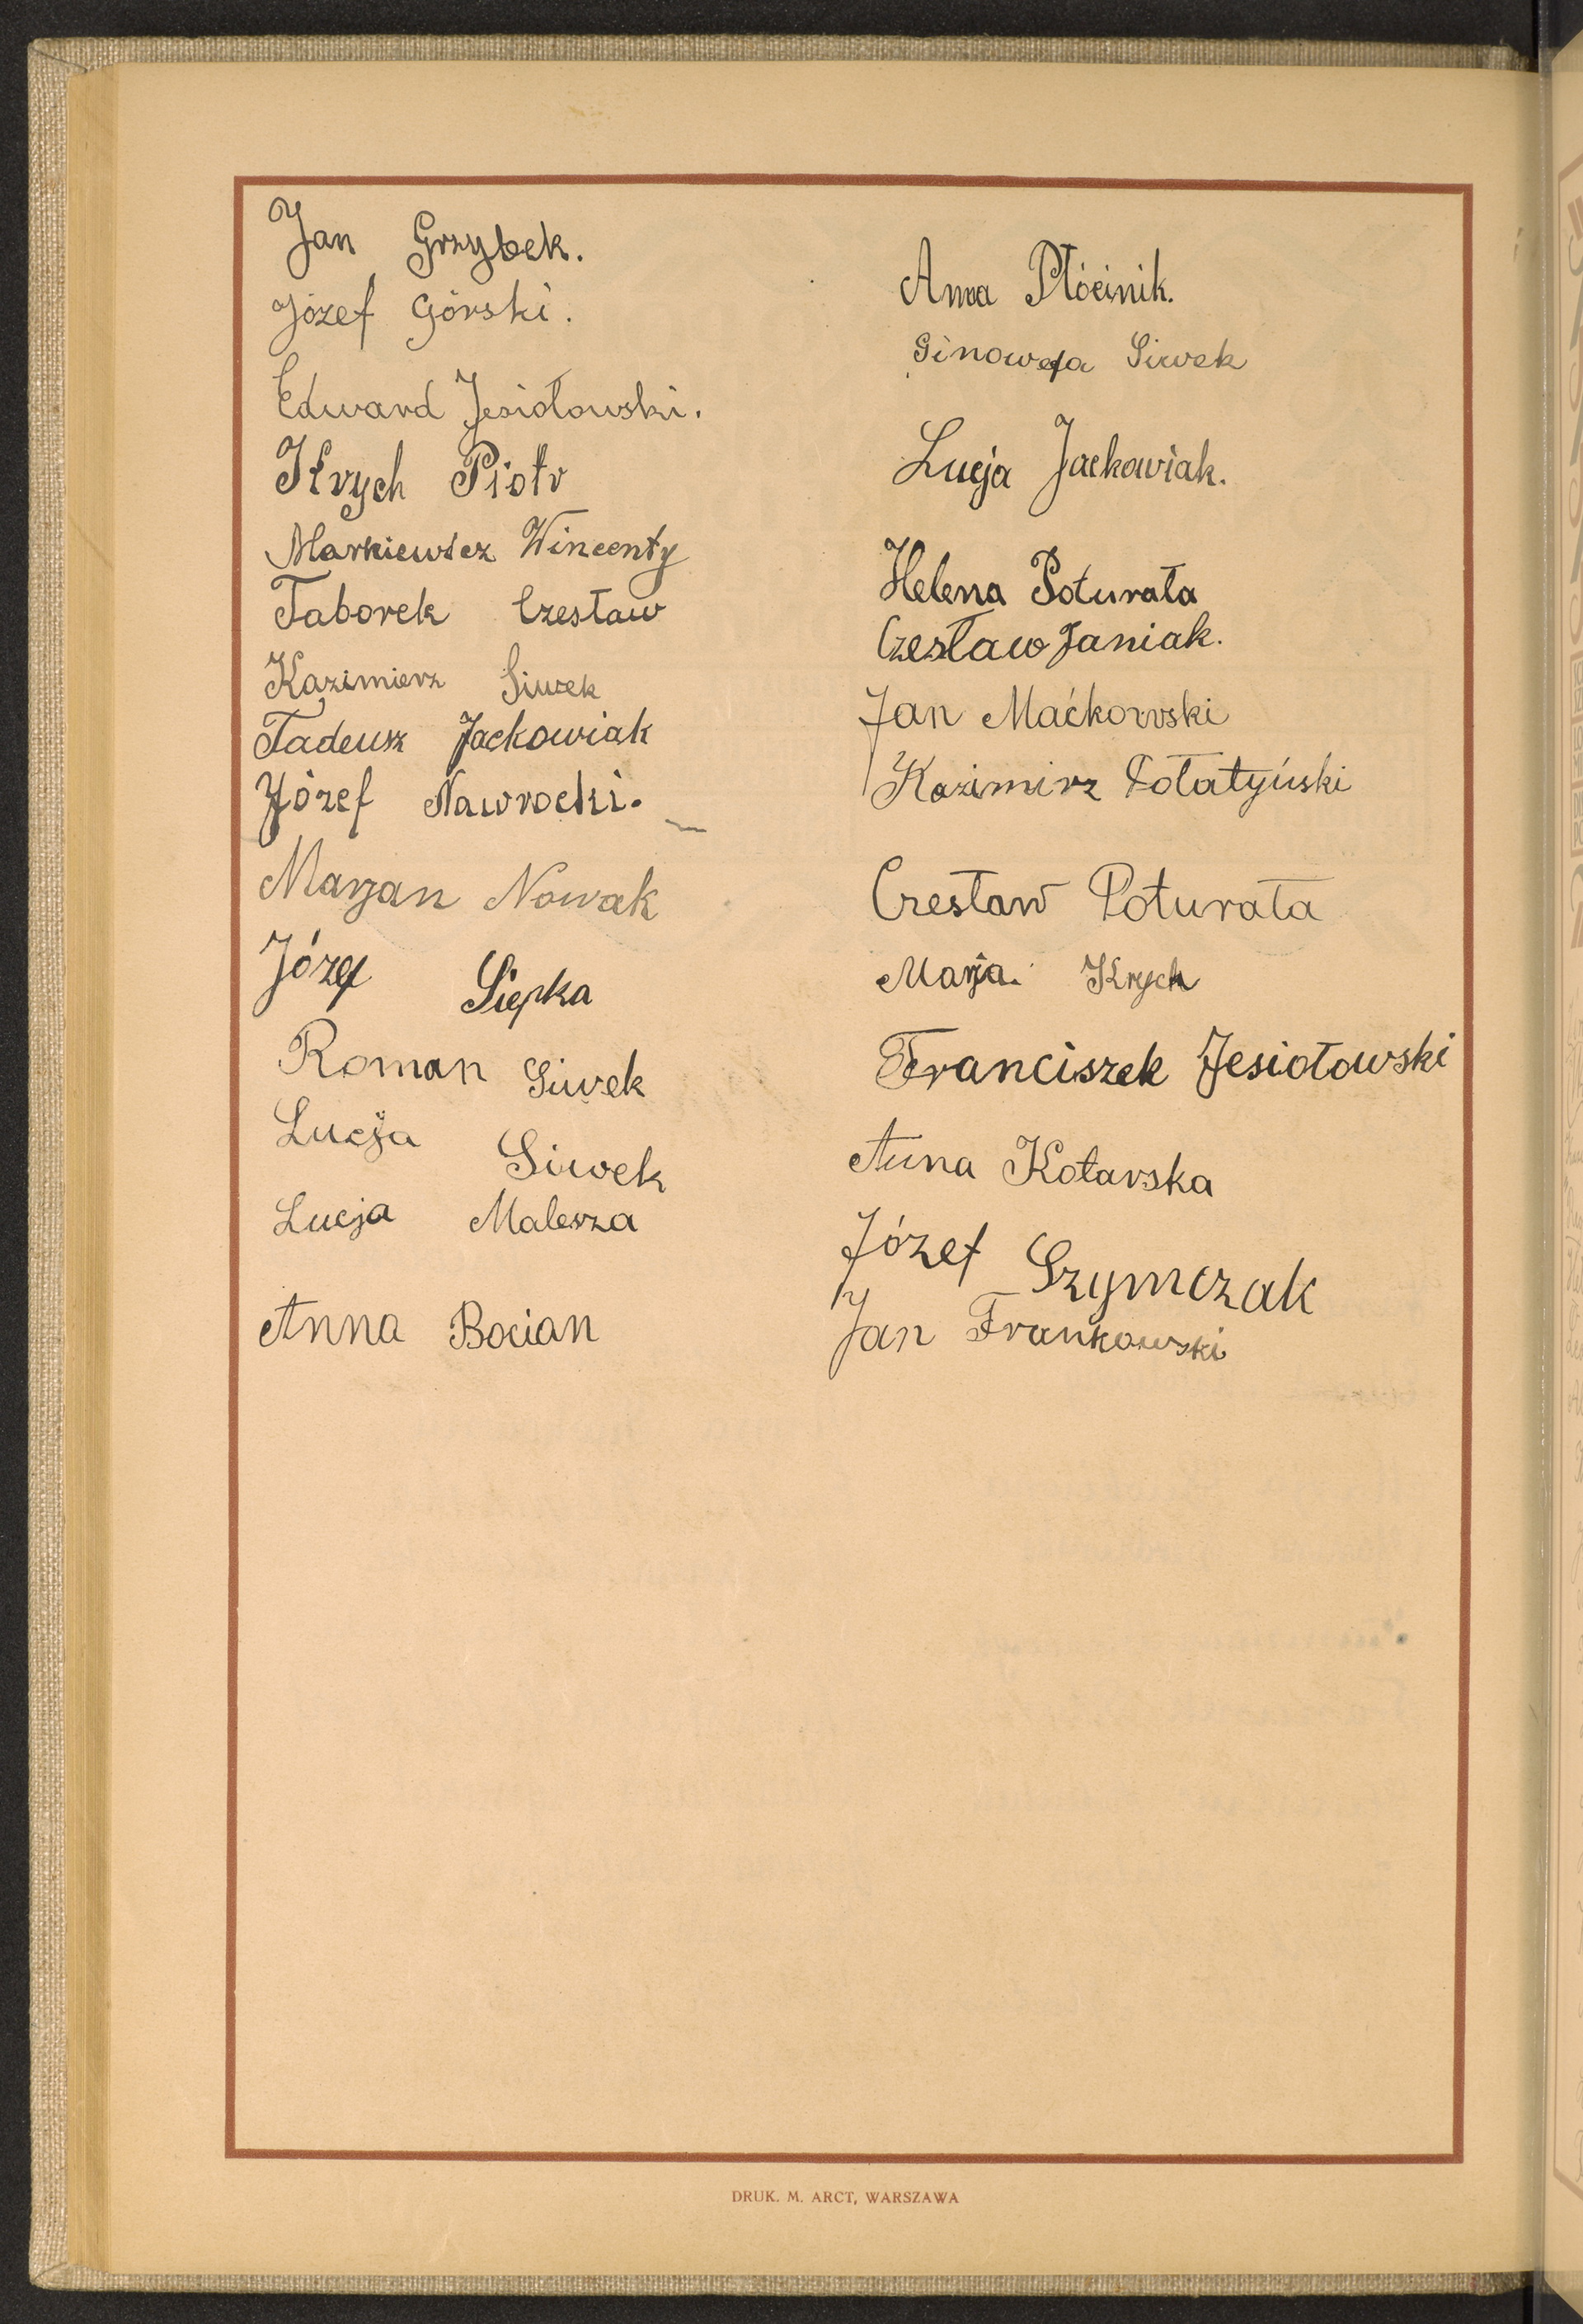 Jan Grzybek.
Józef Górski.
Edward Jesiołowski.
Krych Piotr
Markiewicz Wincenty
Taborek Czesław
Kazimierz Siwek
Tadeusz Jackowiak
Józef Nawrocki.
Marjan Nowak
Józef Siepka
Roman Siwek
Łucja Siwek
Łucja Malesza
Anna Bocian
Anna Płócinik.
Ginowefa Siwek
Łucja Jackowiak.
Helena Poturała
Czesław Janiak.
Jan Maćkowski
Kazimirz Połatyński
Czesław Poturała
Marja Krych
Franciszek Jesiołowski
Anna Kotarska
Józef Szymczak
Jan Frankowski
DRUK. M. ARCT, WARSZAWA